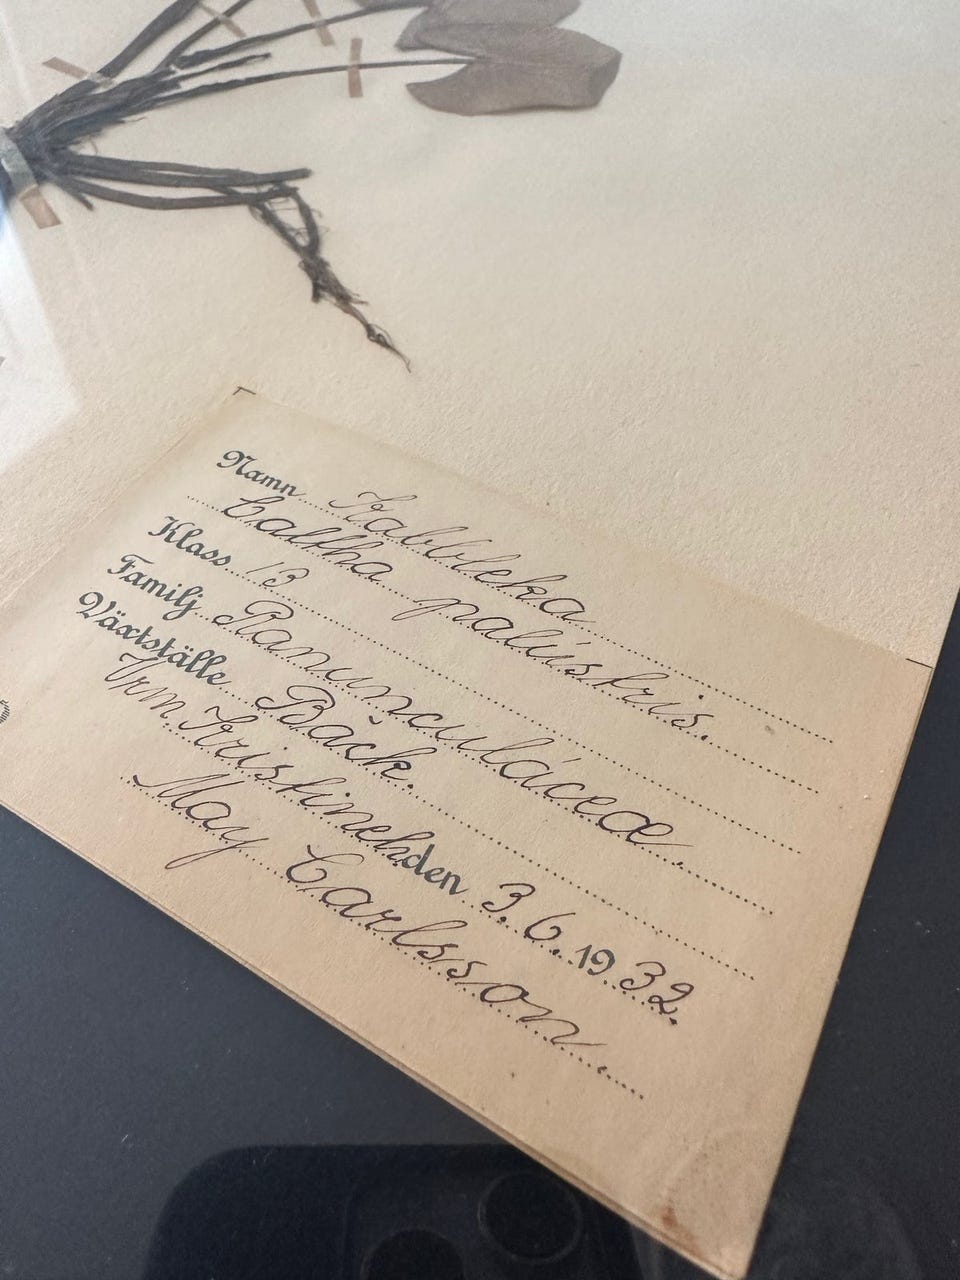 Namn Kabbleka
Caltha palustris.
Klass 13
Familj Ranunculáceæ.
Växtställe Bäck.
Vrm. Kristineh. den 3.6. 1932.
May Carlsson.